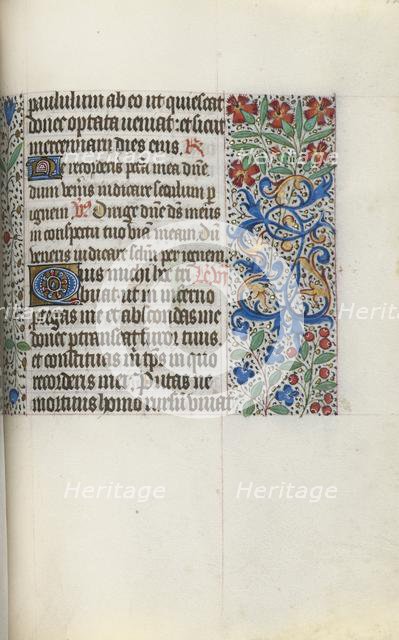 paululum ab eo ut quiescat
donec optata ueniat: et sicut
mercennarii dies eius. R
Ne recorderis pctā mea dñe
dum veneris iudicare seculum p
ignem V̄s Dirige dñe ds meus
in conspectu tuo viā meam Dū
veneris iudicare sclm̄ per ignem
Quis michi hoc tri Lc vi
buat ut in inferno
p̄tegas me et abscondas me
donec p̄transeat furor tuus
et constituas m̄ tp̄s in quo
recorderis mei Putas ne
mortuus homo rursū viuat
Heritage
Heritage
Heritage
Heritage
Heritage
Heritage